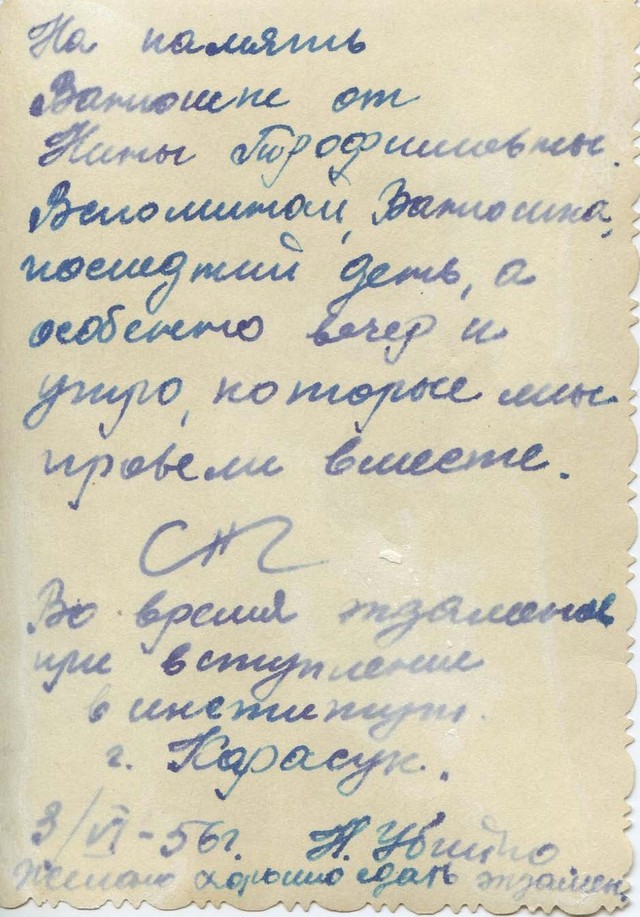 На память
Ванюшке от
Нины Порофиловны.
Вспоминай, Ванюшка,
последний день, а
особенно вечер и
утро, которые мы
провели вместе.
Во время экзаменов
при вступление
в институт.
г. Карасук.
3/VI-56г. Н.
Желаю хорошо сдать экзамен.